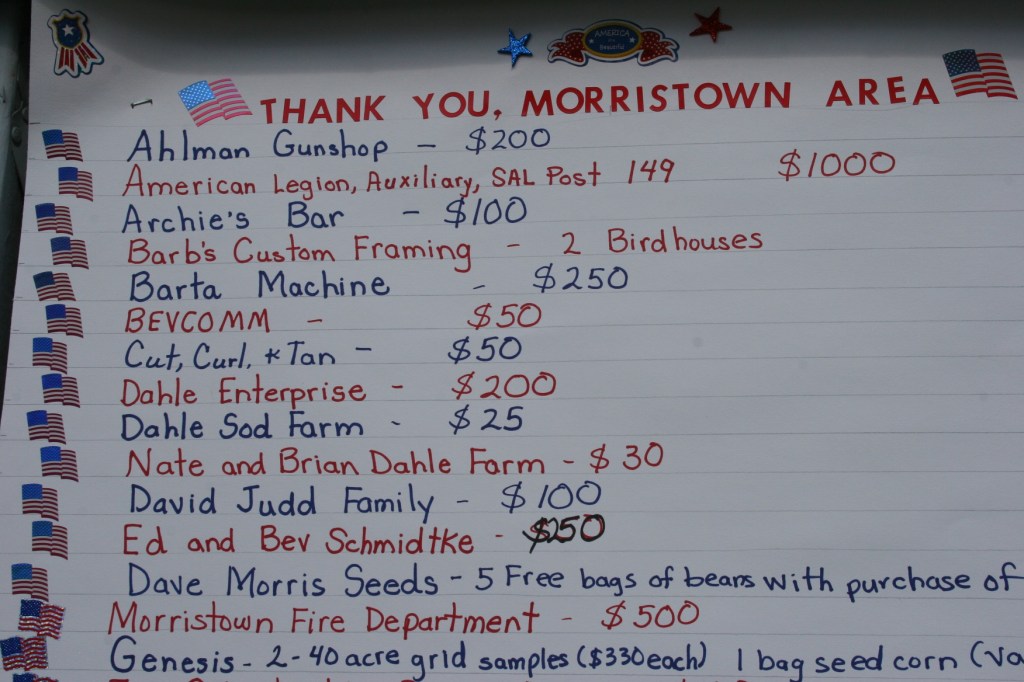 AMERICA
THANK YOU, MORRISTOWN AREA
Ahlman Gunshop - $200
American Legion, Auxiliary, SAL Post 149 $1000
Archie's Bar - $100
Barb's Custom Framing - 2 Birdhouses
Barta Machine - $250
BEVCOMM - $50
Cut, Curl, & Tan - $50
Dahle Enterprise - $200
Dahle Sod Farm - $25
Nate and Brian Dahle Farm - $30
David Judd Family - $100
Ed and Bev Schmidtke - $250
Dave Morris Seeds - 5 Free bags of beans with purchase of
Morristown Fire Department - $500
Genesis - 2-40 acre grid samples ($330 each) 1 bag seed corn (Va